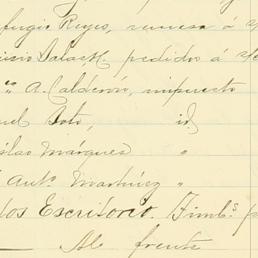 fugio Reyes, remesa á
Salas, pedidos á
" A. Calderón, impuesto
uel Soto, id
olao Márquez "
Anto Martínez "
tos Escritorio. Timbs
Al frente